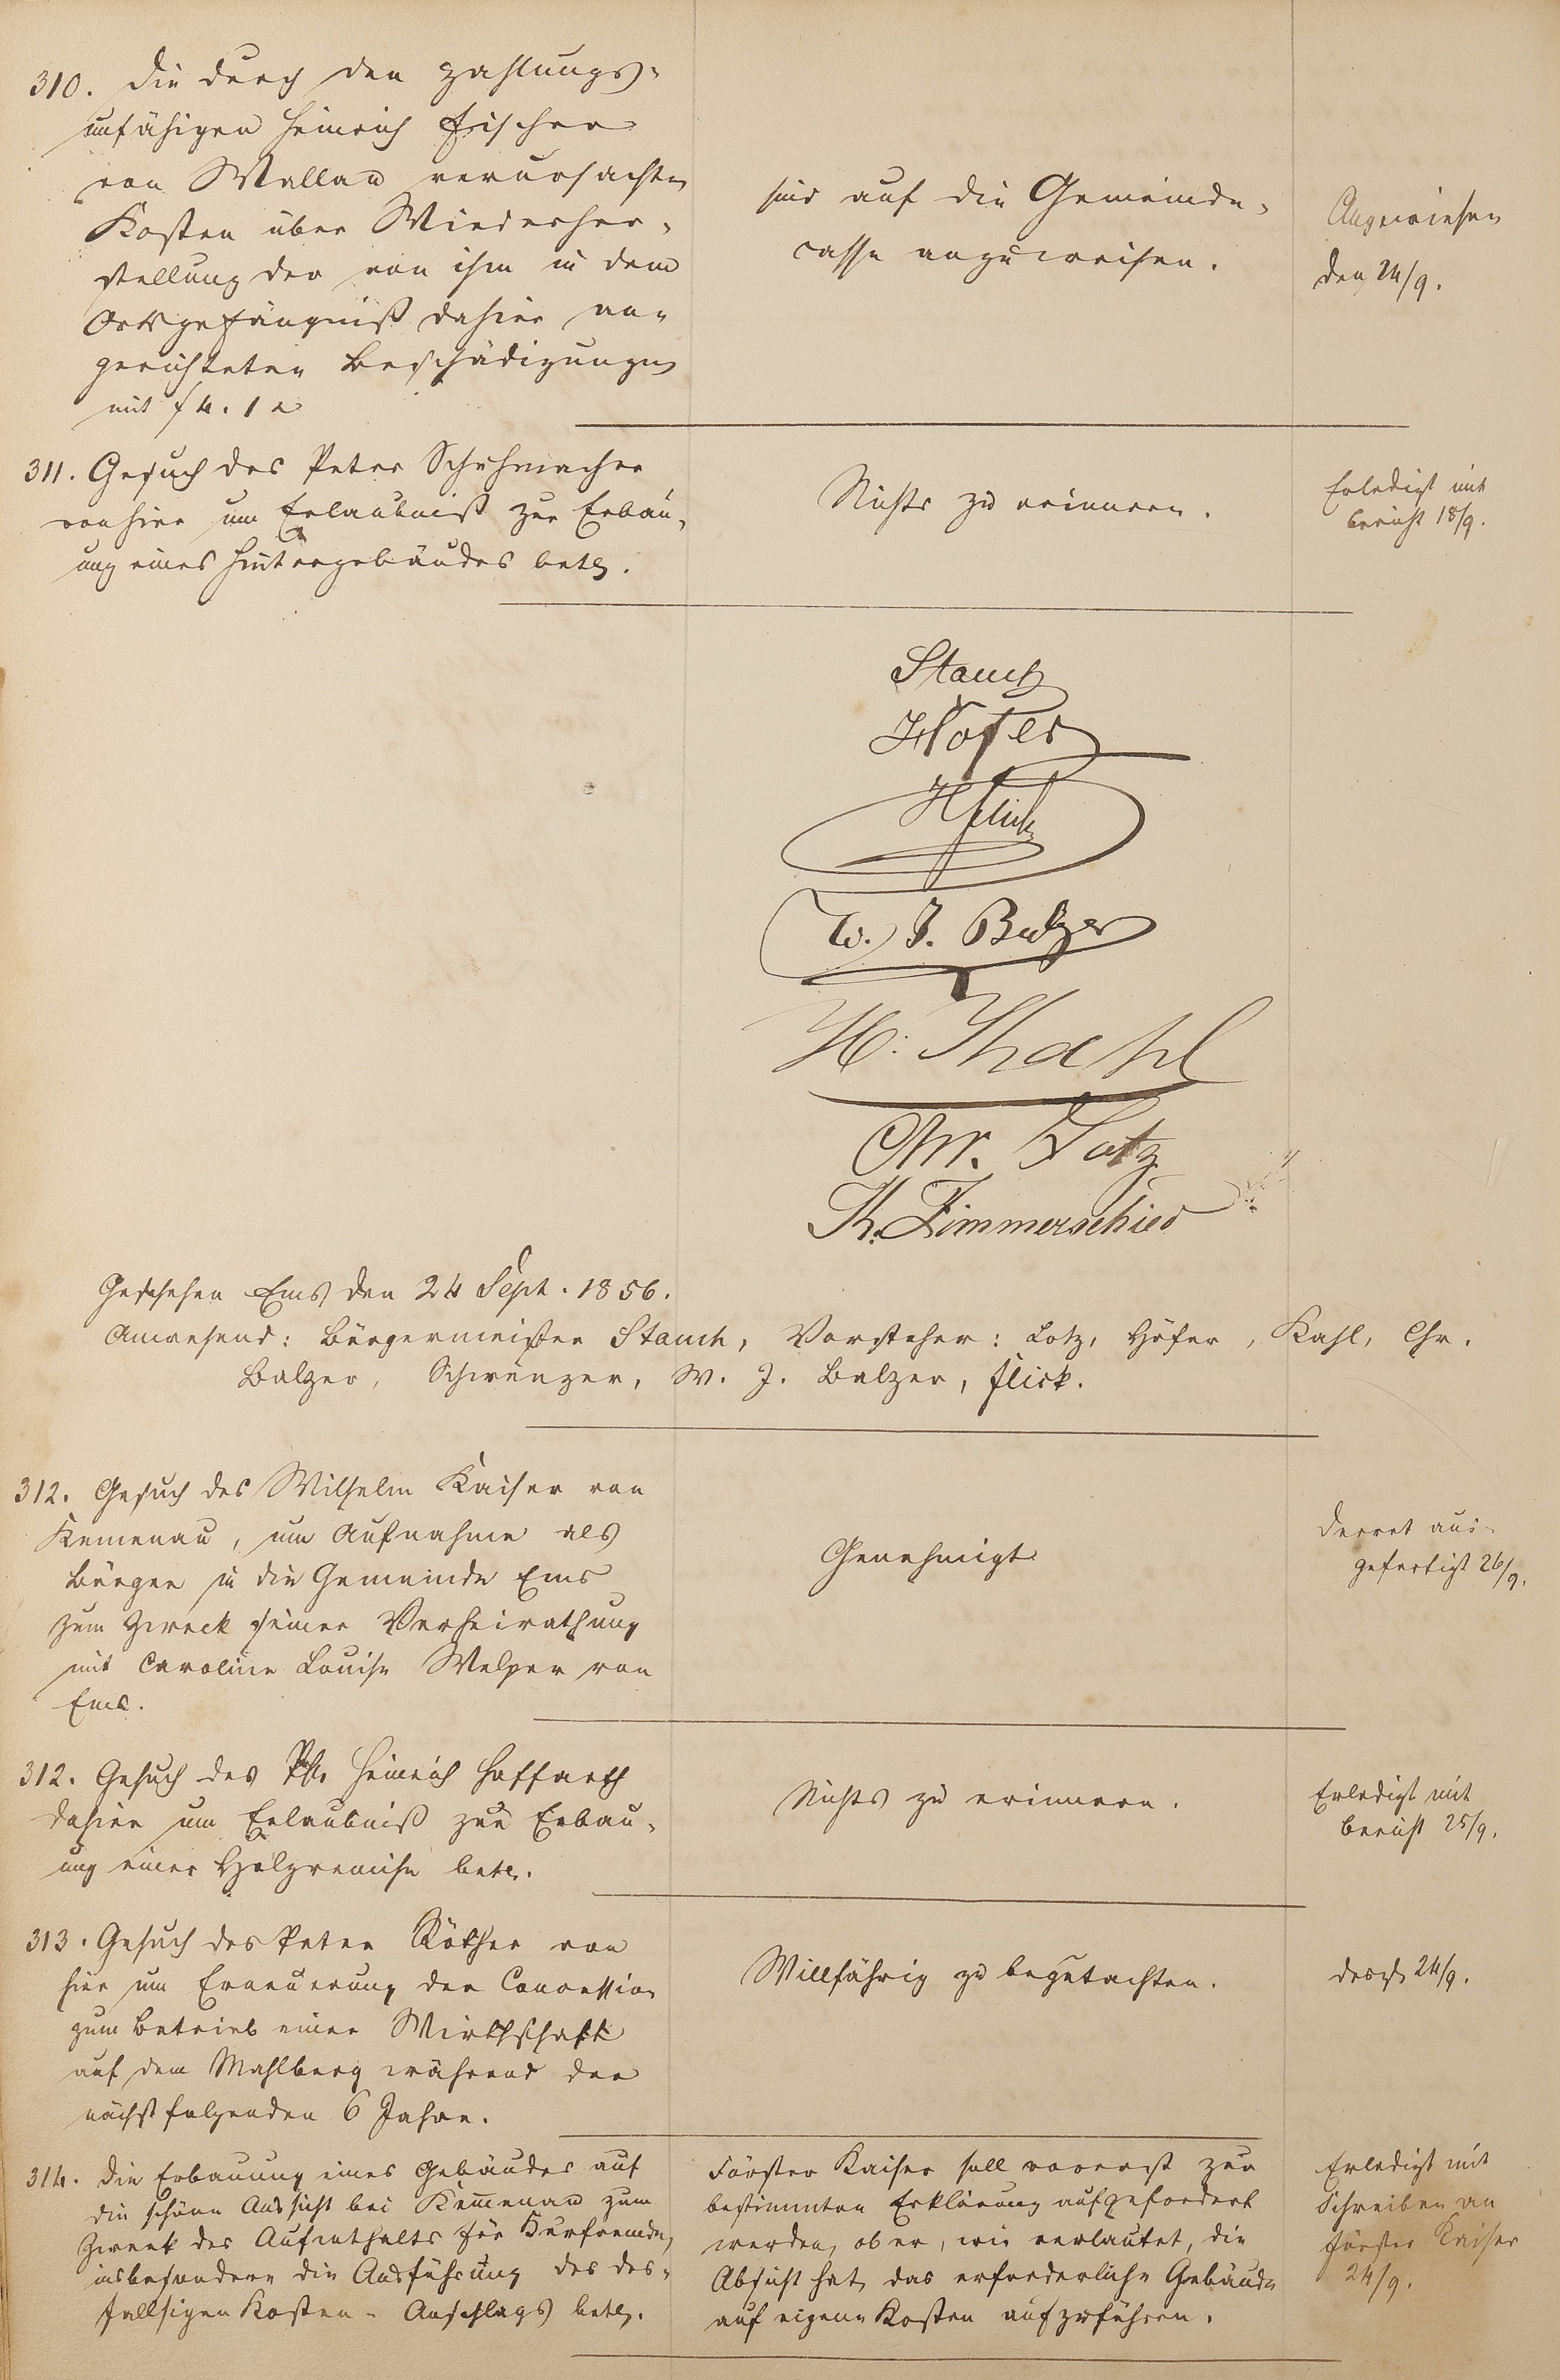 310. Die durch den zahlungs-
unfähigen Heinrich Fischer
von Wallau verursachten
Kosten über Wiederher-
stellung der von ihm in dem
Ortsgefängniß dahier an-
gerichteten Beschädigungen
mit f 4. 12
sind auf die Gemeinde-
casse anzuweisen.
Angewiesen
den 24/9.
311. Gesuch des Peter Schuhmacher
von hier um Erlaubniß zur Erbau-
ung eines Hintergebäudes betr.
Nichts zu erinnern.
Erledigt mit
Bericht 18/9.
Stauch
Höfer
HFlick
W. J. Balzer
H. Kahl
Chr. Lotz
Zimmerschied
Geschehen Ems den 24 Sept. 1856.
Anwesend: Bürgermeister Stauch, Vorsteher: Lotz, Höfer, Kahl, Chr.
Balzer, Schwenzer, W. J. Balzer, Flick.
312. Gesuch des Wilhelm Kaiser von
Kemenau, um Aufnahme als
Bürger in die Gemeinde Ems
zum Zweck seiner Verheirathung
mit Caroline Louise Welper von
Ems.
Genehmigt
Decret aus-
gefertigt 26/9.
312. Gesuch des Ph. Heinrich Haffarth
dahier um Erlaubniß zur Erbau-
ung einer Holzremise betr.
Nichts zu erinnern.
Erledigt mit
Bericht 25/9.
313. Gesuch des Peter Röther von
hier um Erneuerung der Concession
zum Betrieb einer Wirthschaft
auf dem Mahlberg während der
nächstfolgenden 6 Jahre.
Willfährig zu begutachten.
desgl. 24/9.
314. Die Erbauung eines Gebäudes auf
die schöne Aussicht bei Kemenau zum
Zweck des Aufenthalts für Kurfremde,
insbesondere die Ausführung des des-
fallsigen Kosten-Anschlags betr.
Förster Kaiser soll vorerst zur
bestimmten Erklärung aufgefordert
werden, ob er, wie verlautet, die
Absicht hat, das erforderliche Gebäude
auf eigene Kosten aufzuführen.
Erledigt mit
Schreiben an
Förster Kaiser
24/9.